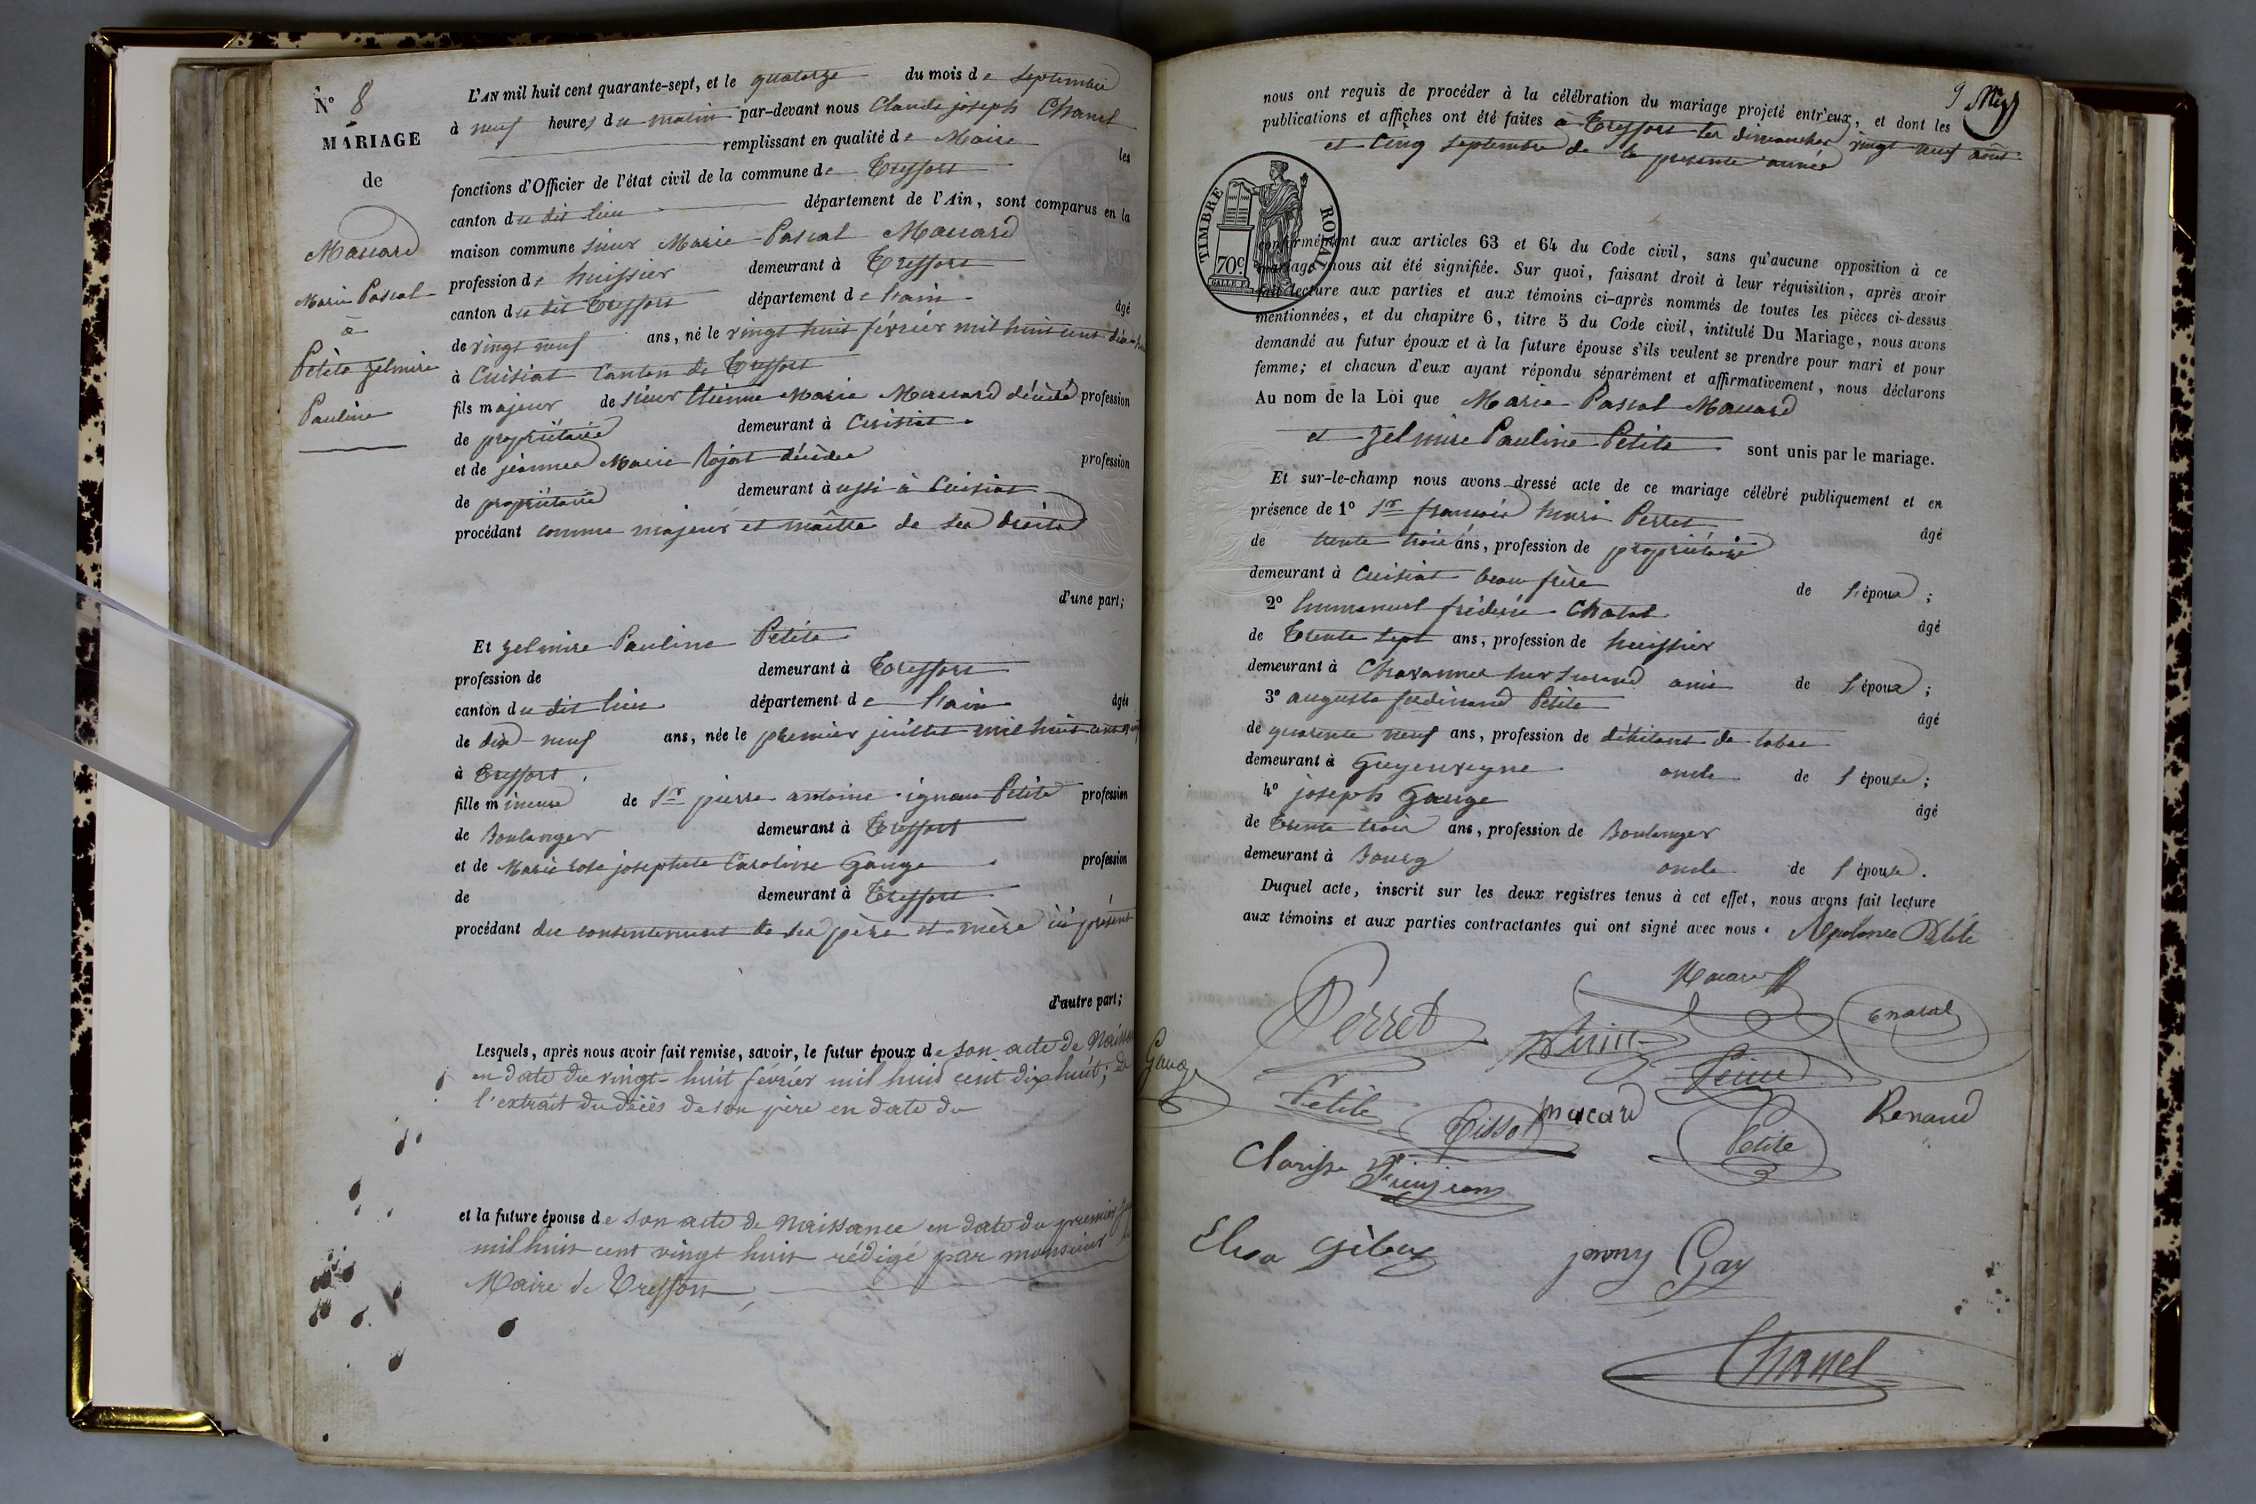 N° 8
MARIAGE
de
Macard
Marie Pascal
à
Petite Zelmire
Pauline
L'AN mil huit cent quarante-sept, et le quatorze du mois de septembre
à neuf heures du matin par-devant nous Claude joseph Chanel
remplissant en qualité de Maire les
fonctions d'Officier de l'état civil de la commune de Treffort
canton du dit lieu département de l'Ain, sont comparus en la
maison commune sieur Marie Pascal Macard
profession de huissier demeurant à Treffort
canton du dit Treffort département de l'ain âgé
de vingt neuf ans, né le vingt huit février mil huit cent dix
à Cuisiat Canton de Treffort
fils majeur de sieur Etienne Marie Macard décédé profession
de propriétaire demeurant à Cuisiat
et de jeanne Marie décédée profession
de propriétaire demeurant à ussi à Cuisiat
procédant comme majeur et maître de ses droits
d'une part;
Et zelmire Pauline Petite
profession de demeurant à Treffort
canton du dit lieu département de l'ain âgée
de dix-neuf ans, née le premier juillet mil huit cent
à Treffort
fille mineure de Sr pierre antoine ignace Petite profession
de Boulanger demeurant à Treffort
et de Marie rose josephete Caroline Gauge profession
de demeurant à Treffort
procédant du consentement de ses père et mère ici présent
d'autre part;
Lesquels, après nous avoir fait remise, savoir, le futur époux de son acte de Naissance
en date du vingt-huit février mil huit cent dix huit; et
l'extrait du décès de son père en date du
et la future épouse de son acte de Naissance en date du premier
mil huit cent vingt huit rédigé par monsieur le
Maire de Treffort
9
nous ont requis de procéder à la célébration du mariage projeté entr'eux, et dont les
publications et affiches ont été faites à Treffort les dimanches vingt neuf août
et Cinq septembre de la presente année
TIMBRE ROYAL
70c
conformément aux articles 63 et 64 du Code civil, sans qu'aucune opposition à ce
mariage nous ait été signifiée. Sur quoi, faisant droit à leur réquisition, après avoir
fait lecture aux parties et aux témoins ci-après nommés de toutes les pièces ci-dessus
mentionnées, et du chapitre 6, titre 5 du Code civil, intitulé Du Mariage, nous avons
demandé au futur époux et à la future épouse s'ils veulent se prendre pour mari et pour
femme; et chacun d'eux ayant répondu séparément et affirmativement, nous déclarons
Au nom de la Loi que Marie Pascal Macard
et Zelmire Pauline Petite sont unis par le mariage.
Et sur-le-champ nous avons dressé acte de ce mariage célébré publiquement et en
présence de 1° Sr françois henri Perret âgé
de trente trois ans, profession de propriétaire
demeurant à Cuisiat beau frère de l'époux ;
2° Emmanuel frédéric Chatal âgé
de Trente sept ans, profession de huissier
demeurant à Chavannes sur Surand ami de l'époux ;
3° auguste ferdinand Petite âgé
de quarente neuf ans, profession de débitant de tabac
demeurant à oncle de l'épouse ;
4° joseph Gauge âgé
de Trente trois ans, profession de Boulanger
demeurant à Bourg oncle de l'épouse .
Duquel acte, inscrit sur les deux registres tenus à cet effet, nous avons fait lecture
aux témoins et aux parties contractantes qui ont signé avec nous. Petite
Macard
Perret
Gauge
Petite
Tissot
macard
Petite
Renaud
Clarisse
Elisa
jenny Gay
Chanel